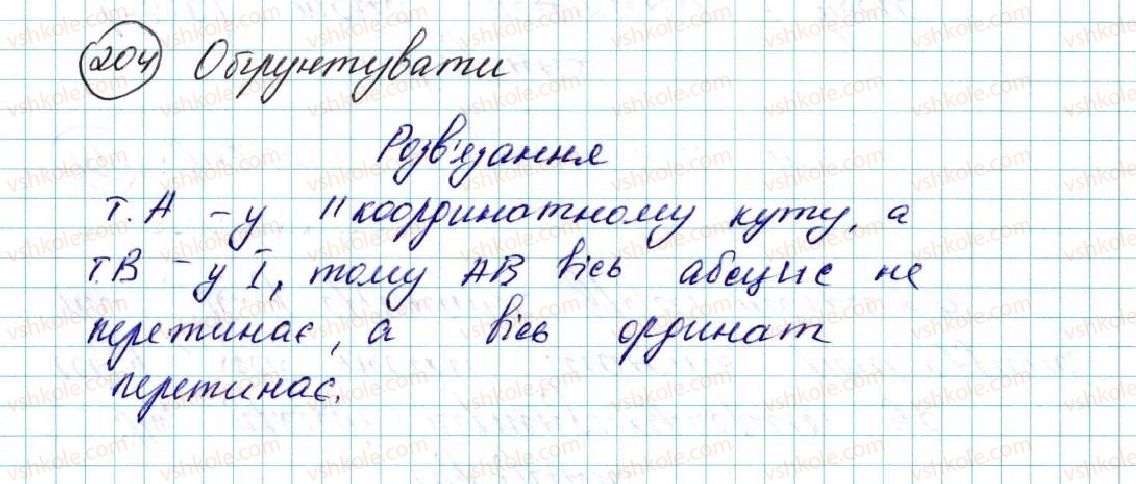 204 Обґрунтувати
Розв'язання
т. А – у II координатному куту, а
т. В – у I, тому АВ вісь абсцис не
перетинає, а вісь ординат
перетинає.